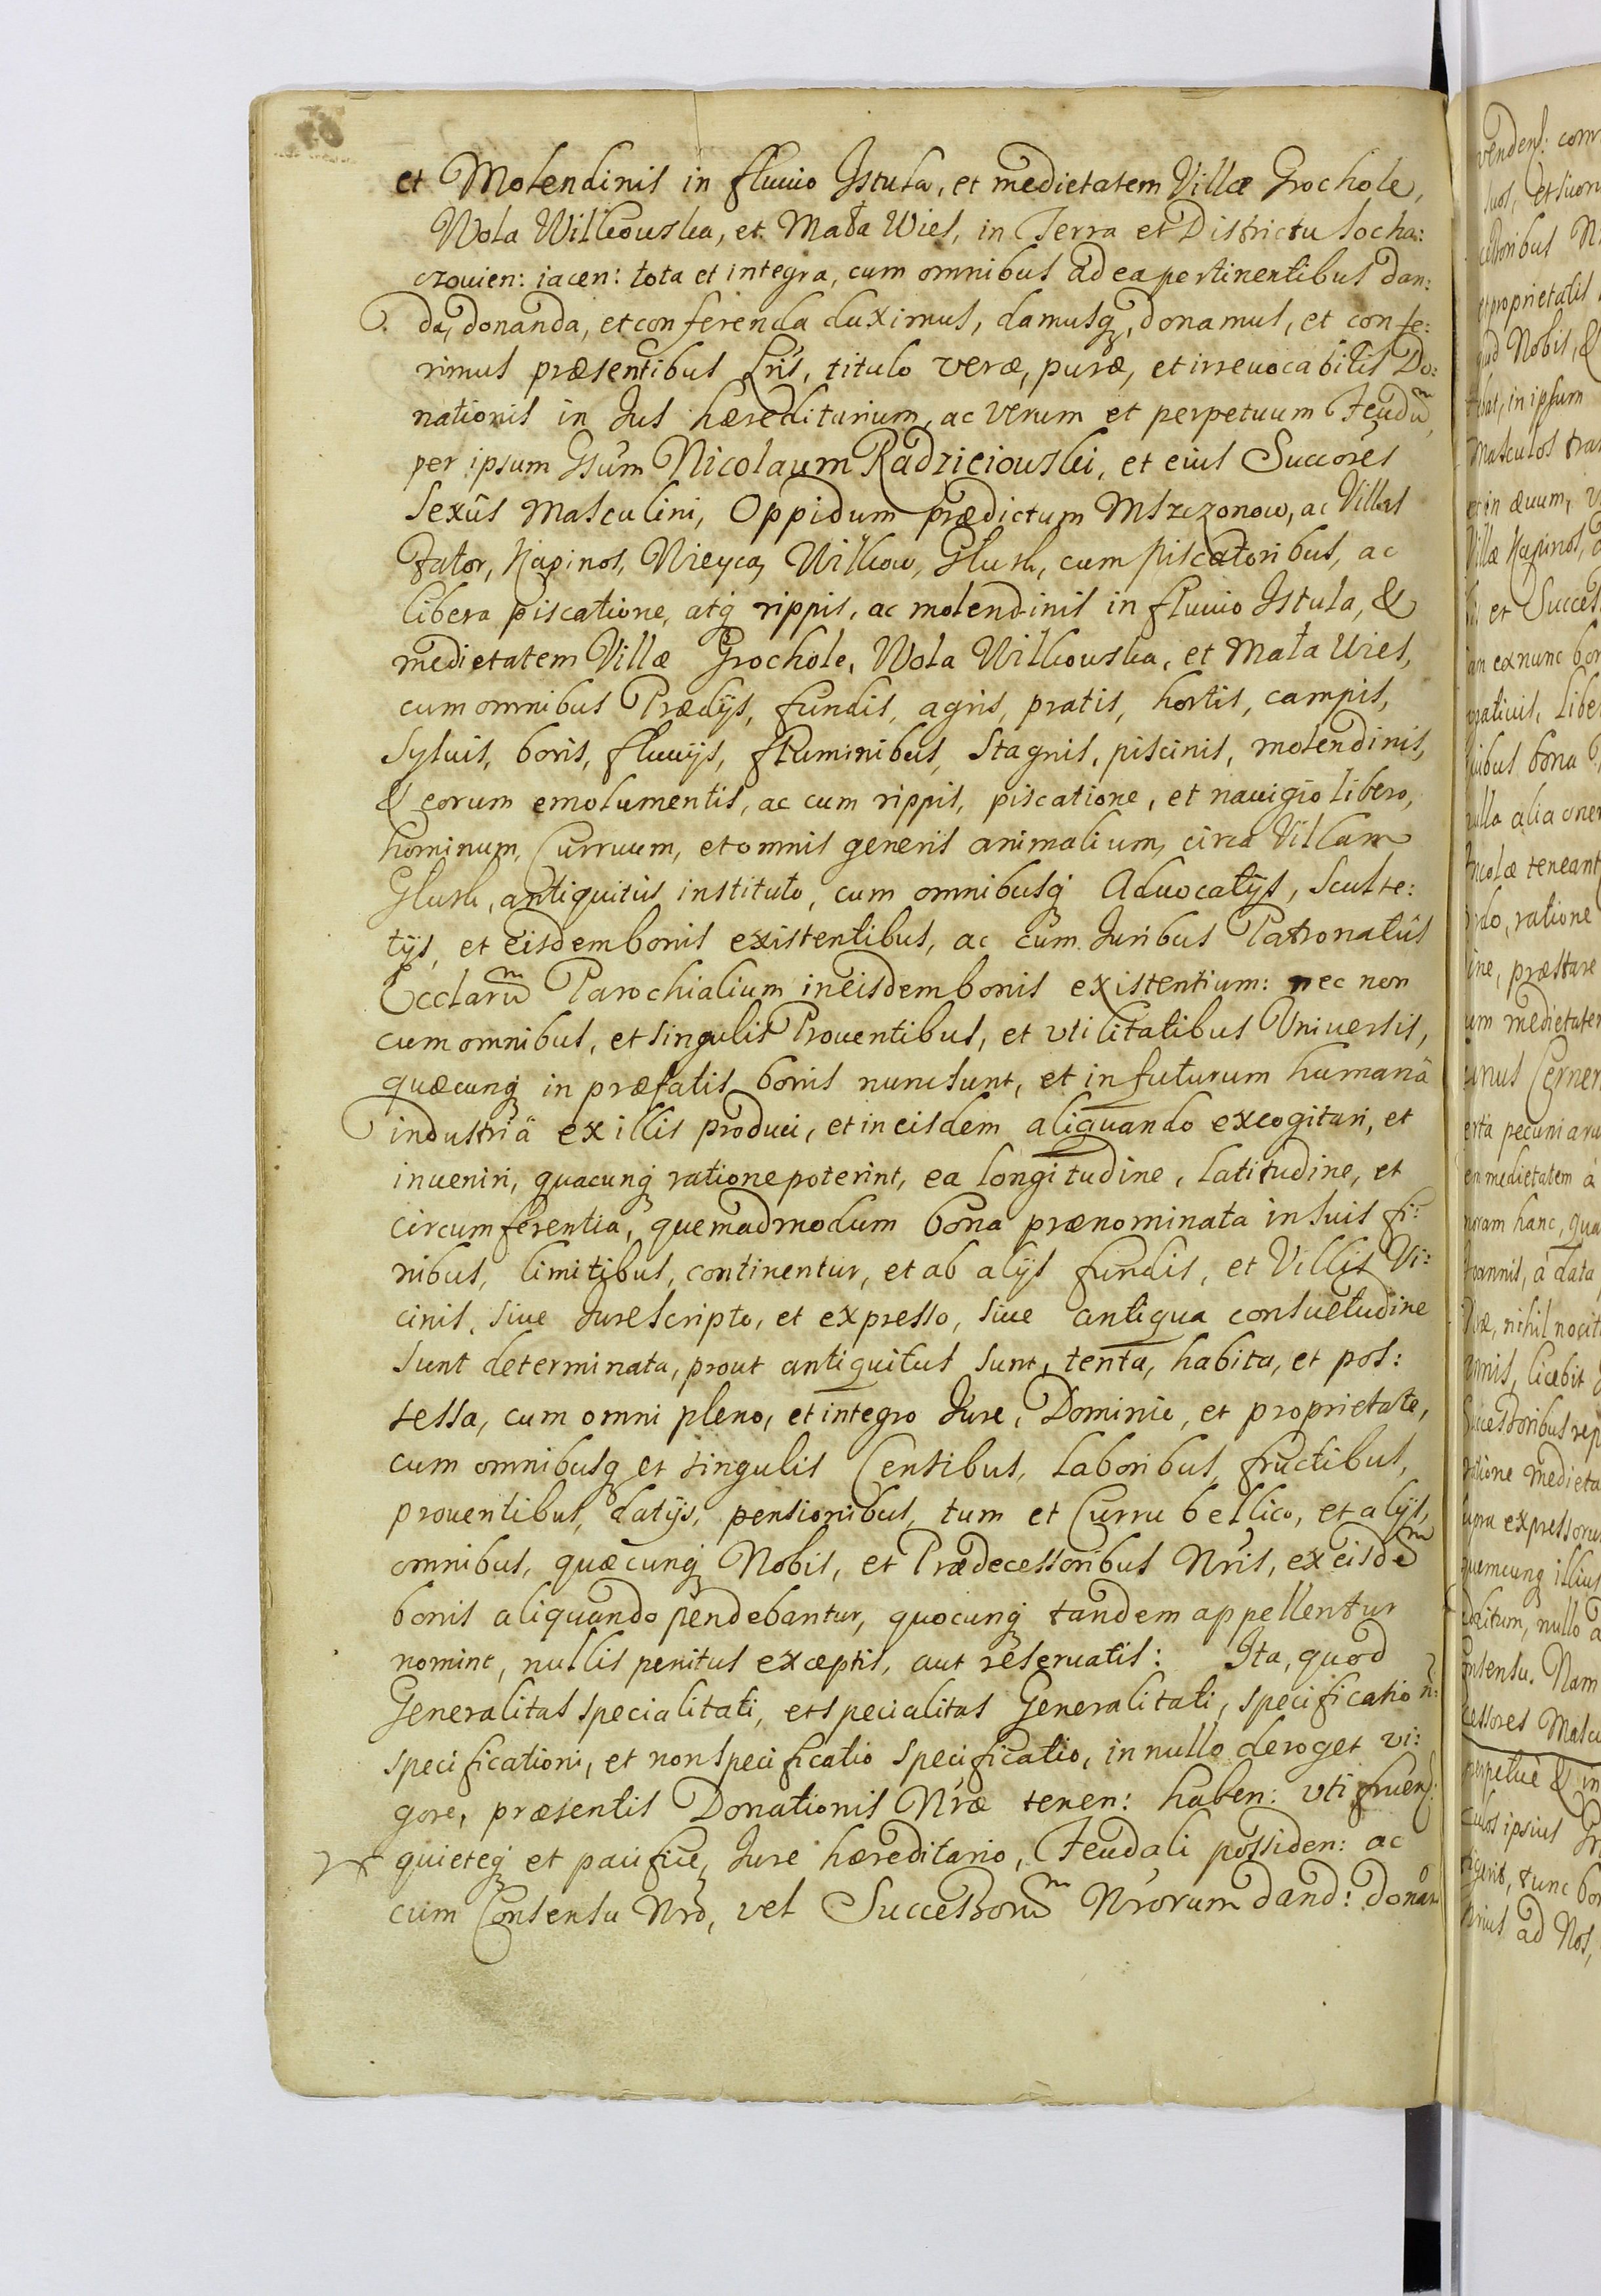 et Molendinis in fluuio Istula, et medietatem Villæ Grochole,
Wola Wilkouska, et Mała Wies, in Terra et Districtu Socha:
czouien: iacen: tota et integra, cum omnibus ad ea pertinentibus dan:
da, donanda, et conferenda duximus, damusq, donamus, et confe:
rimus præsentibus Lris, titulo veræ, puræ, et irreuocabilis Do:
nationis in Jus hæreditarium, ac verum et perpetuum Feudũ,
per ipsum Gsum Nicolaum Radzieiouski, et eius Succores
Sexûs Masculini, Oppidum prædictum Mszczonow, ac Villas
Zator, Kapinos, Nieyca, Wilkow, Glusk, cum piscatoribus, ac
libera piscatione, atq rippis, ac molendinis in fluuio Istula, &
medietatem Villæ Grochole, Wola Wilkouska, et Mała Wies,
cum omnibus Prædijs, fundis, agris, pratis, hortis, campis,
Syluis, boris, fluuijs, fluminibus, Stagnis, piscinis, molendinis,
& eorum emolumentis, ac cum rippis, piscatione, et nauigio libero,
hominum, Curruum, et omnis generis animalium, circa Villam
Glusk, antiquitùs instituto, cum omnibusq Aduocatijs, Sculte:
tijs, et eisdem bonis existentibus, ac cum Juribus Patronatûs
Ecclarũ Parochialium in eisdem bonis existentium: nec non
cum omnibus, et singulis Prouentibus, et vtilitatibus Vniuersis,
quæcunq in præfatis bonis nunc sunt, et in futurum humanâ
industriâ ex illis produci, et in eisdem aliquando excogitari, et
inueniri, quacunq ratione poterint, ea longitudine, latitudine, et
circumferentia, quemadmodum bona prænominata in suis fi:
nibus, limitibus, continentur, et ab alijs fundis, et Villis Vi:
cinis, siue Jure Scripto, et expresso, siue antiqua consuetudine
sunt determinata, prout antiquitus sunt, tenta, habita, et pos:
sessa, cum omni pleno, et integro Jure, Dominio, et proprietate,
cum omnibusq et singulis Censibus, laboribus, fructibus,
prouentibus, datijs, pensionibus, tum et Curru bellico, et alijs,
omnibus, quæcunq Nobis, et Prædecessoribus Nris, ex eisdẽ
bonis aliquando pendebantur, quocunq tandem appellentur
nomine, nullis penitus exceptis, aut reseruatis: Ita, quod
Generalitas specialitati, et specialitas Generalitati, specificatio ñ:
specificationi, et non specificatio specificatio, in nullo deroget vi:
gore, præsentis Donationis Nræ tenen: haben: vti fruend:
quieteq et pacifice, Jure hæreditario, Feudali possiden: ac
cum Consensu Nro, vel Successorũ Nrorum dand: donan